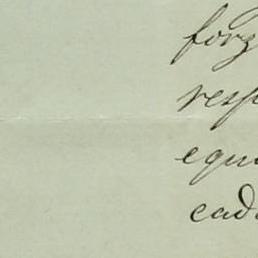 forz
resp
equi
cada